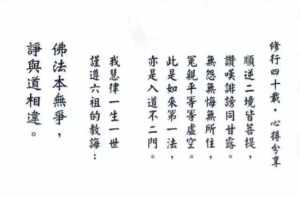 修行四十載,心得分享
順逆二境皆菩提,
讚嘆誹謗同甘露。
無怨無悔無所住,
冤親平等等虛空。
此是如來第一法,
亦是入道不二門。
我慧律一生一世
謹遵六祖的教誨:
佛法本無爭,
諍與道相違。